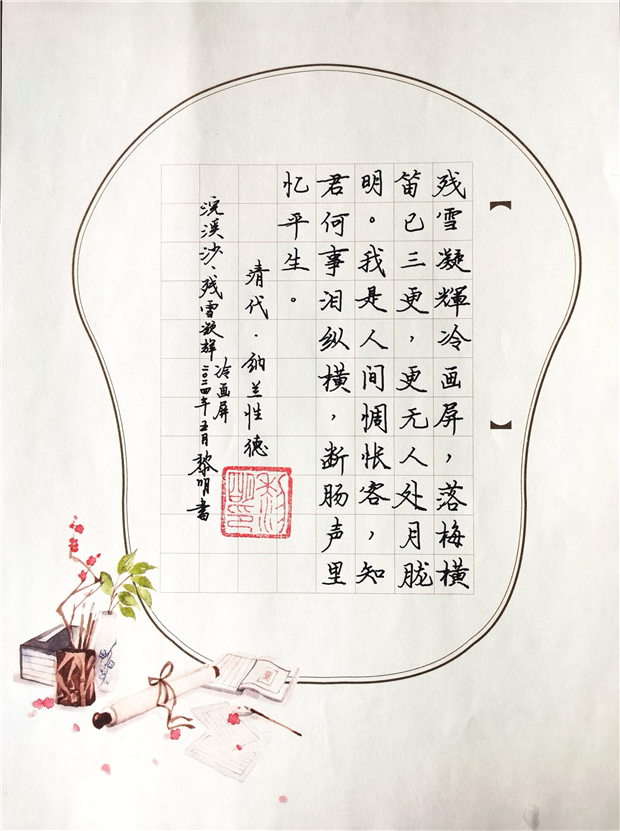 残雪凝輝冷画屏，落梅横
笛已三更，更无人处月胧
明。我是人间惆怅客，知
君何事泪纵横，断肠声里
忆平生。
清代·纳兰性德
浣溪沙、残雪凝辉
冷画屏
二〇二四年五月黎明書